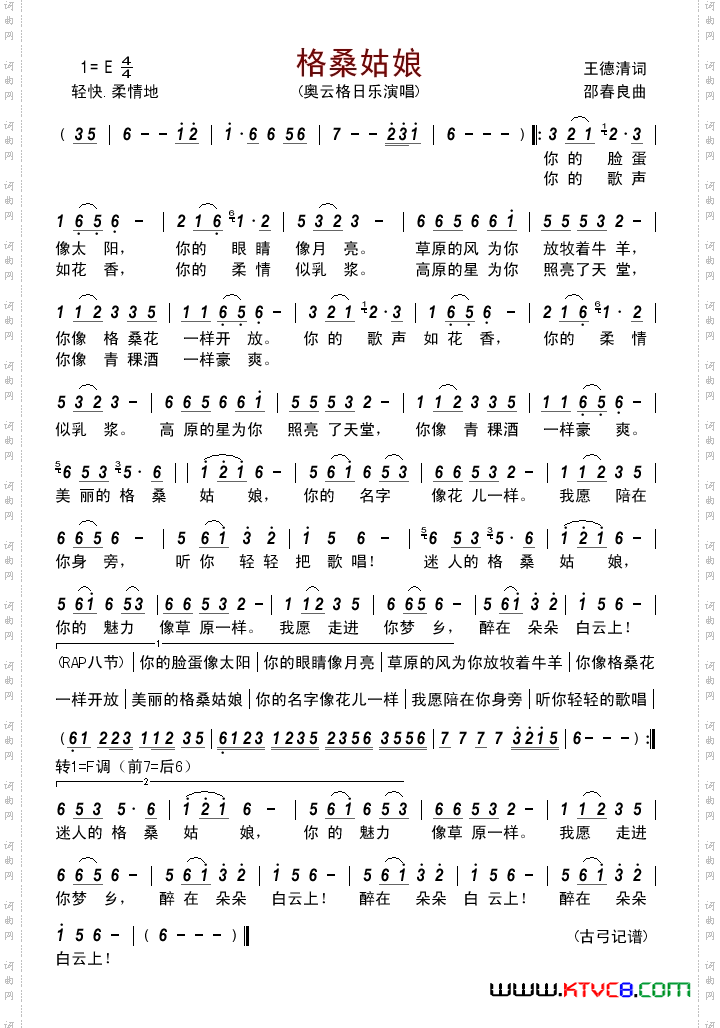 格桑姑娘
1=E 4/4
王德清词
轻快.柔情地
(奥云格日乐演唱)
邵春良曲
( 3 5 | 6 - - 1 2 | 1 · 6 6 5 6 | 7 - - 2 3 1 | 6 - - - ) ‖: 3 2 1 1 2 · 3 |
你的 脸蛋
你的 歌声
1 6 5 6 - | 2 1 6 6 1 · 2 | 5 3 2 3 - | 6 6 5 6 6 1 | 5 5 5 3 2 - |
像太 阳， 你的 眼睛 像月 亮。 草原的风 为你 放牧着牛 羊，
如花 香， 你的 柔情 似乳 浆。 高原的星 为你 照亮了天 堂，
1 1 2 3 3 5 | 1 1 6 5 6 - | 3 2 1 1 2 · 3 | 1 6 5 6 - | 2 1 6 6 1 · 2 |
你像 格 桑花 一样开 放。 你 的 歌 声 如 花 香， 你的 柔 情
你像 青 稞酒 一样豪 爽。
5 3 2 3 - | 6 6 5 6 6 1 | 5 5 5 3 2 - | 1 1 2 3 3 5 | 1 1 6 5 6 - |
似乳 浆。 高 原的星为你 照亮 了天堂， 你像 青 稞酒 一样豪 爽。
5 6 5 3 3 5 · 6 | | 1 2 1 6 - | 5 6 1 6 5 3 | 6 6 5 3 2 - | 1 1 2 3 5 |
美 丽的 格 桑 姑 娘， 你的 名字 像花 儿一样。 我愿 陪在
6 6 5 6 - | 5 6 1 3 2 | 1 5 6 - | 5 6 5 3 3 5 · 6 | 1 2 1 6 - |
你身 旁， 听你 轻轻 把 歌唱！ 迷 人的 格 桑 姑 娘，
5 6 1 6 5 3 | 6 6 5 3 2 - | 1 1 2 3 5 | 6 6 5 6 - | 5 6 1 3 2 | 1 5 6 - |
你的 魅力 像草 原一样。 我愿 走进 你梦 乡， 醉在 朵朵 白云上！
1
(RAP八节) | 你的脸蛋像太阳 | 你的眼睛像月亮 | 草原的风为你放牧着牛羊 | 你像格桑花
一样开放 | 美丽的格桑姑娘 | 你的名字像花儿一样 | 我愿陪在你身旁 | 听你轻轻的歌唱 |
( 6 1 2 2 3 1 1 2 3 5 | 6 1 2 3 1 2 3 5 2 3 5 6 3 5 5 6 | 7 7 7 7 3 2 1 5 | 6 - - - ) :‖
转1=F调（前7=后6）
2
6 5 3 5 · 6 | 1 2 1 6 - | 5 6 1 6 5 3 | 6 6 5 3 2 - | 1 1 2 3 5 |
迷人的 格 桑 姑 娘， 你 的 魅力 像草 原一样。 我愿 走进
6 6 5 6 - | 5 6 1 3 2 | 1 5 6 - | 5 6 1 3 2 | 1 5 6 - | 5 6 1 3 2 |
你梦 乡， 醉 在 朵朵 白云上！ 醉在 朵朵 白 云上！ 醉在 朵朵
1 5 6 - | ( 6 - - - ) ‖
(古弓记谱)
白云上！
www.KTVC8.com